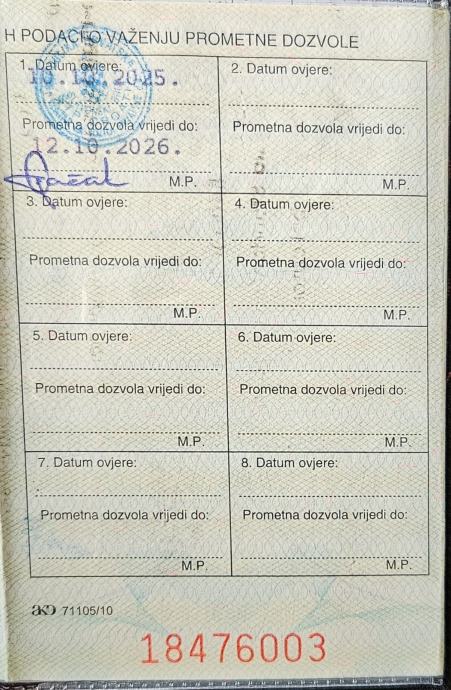 H PODACI O VAŽENJU PROMETNE DOZVOLE
1. Datum ovjere:
10.10.2025.
Prometna dozvola vrijedi do:
12.10.2026.
M.P.
2. Datum ovjere:
Prometna dozvola vrijedi do:
M.P.
3. Datum ovjere:
Prometna dozvola vrijedi do:
M.P.
4. Datum ovjere:
Prometna dozvola vrijedi do:
M.P.
5. Datum ovjere:
Prometna dozvola vrijedi do:
M.P.
6. Datum ovjere:
Prometna dozvola vrijedi do:
M.P.
7. Datum ovjere:
Prometna dozvola vrijedi do:
M.P.
8. Datum ovjere:
Prometna dozvola vrijedi do:
M.P.
AKD 71105/10
18476003